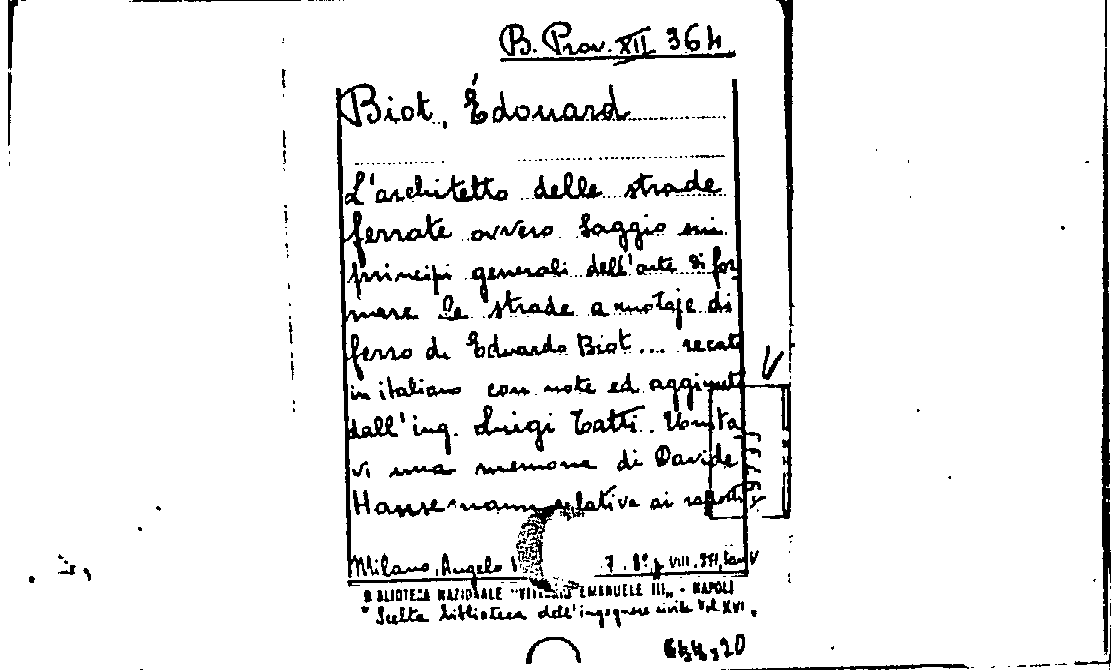 B. Prov. XII 364
Biot, Édouard
L'architetto delle strade
ferrate ovvero Saggio sui
principi generali dell'arte di for
mare le strade a ruotaje di
ferro di Eduardo Biot... recato
in italiano con note ed aggiunte
dall'ing. Luigi Tatti. Unita
vi una memoria di Davide
Hansemann relativa ai rapporti
Milano, Angelo 7. 8° p. VIII.
BIBLIOTECA NAZIONALE "VITTORIO EMANUELE III" - NAPOLI
"Scelta biblioteca dell'ingegnere civile Vol XVI.